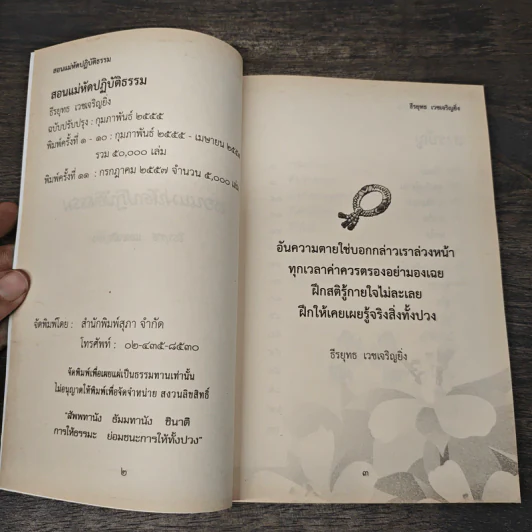 สอนแม่หัดปฏิบัติธรรม
สอนแม่หัดปฏิบัติธรรม
ธีรยุทธ เวชเจริญยิ่ง
ฉบับปรับปรุง : กุมภาพันธ์ ๒๕๕๕
พิมพ์ครั้งที่ ๑ - ๑๐ : กุมภาพันธ์ ๒๕๕๕ - เมษายน
รวม ๕๐,๐๐๐ เล่ม
พิมพ์ครั้งที่ ๑๑ : กรกฎาคม ๒๕๕๗ จำนวน ๕,๐๐๐ เล่ม
จัดพิมพ์โดย : สำนักพิมพ์สุภา จำกัด
โทรศัพท์ : ๐๒-๔๓๕-๘๕๓๐
จัดพิมพ์เพื่อเผยแผ่เป็นธรรมทานเท่านั้น
ไม่อนุญาตให้พิมพ์เพื่อจัดจำหน่าย สงวนลิขสิทธิ์
"สัพพทานัง ธัมมทานัง ชินาติ
การให้ธรรมะ ย่อมชนะการให้ทั้งปวง"
๒
ธีรยุทธ เวชเจริญยิ่ง
อันความตายใช่บอกกล่าวเราล่วงหน้า
ทุกเวลาค่าควรตรองอย่ามองเฉย
ฝึกสติรู้กายใจไม่ละเลย
ฝึกให้เคยเผยรู้จริงสิ่งทั้งปวง
ธีรยุทธ เวชเจริญยิ่ง
๓